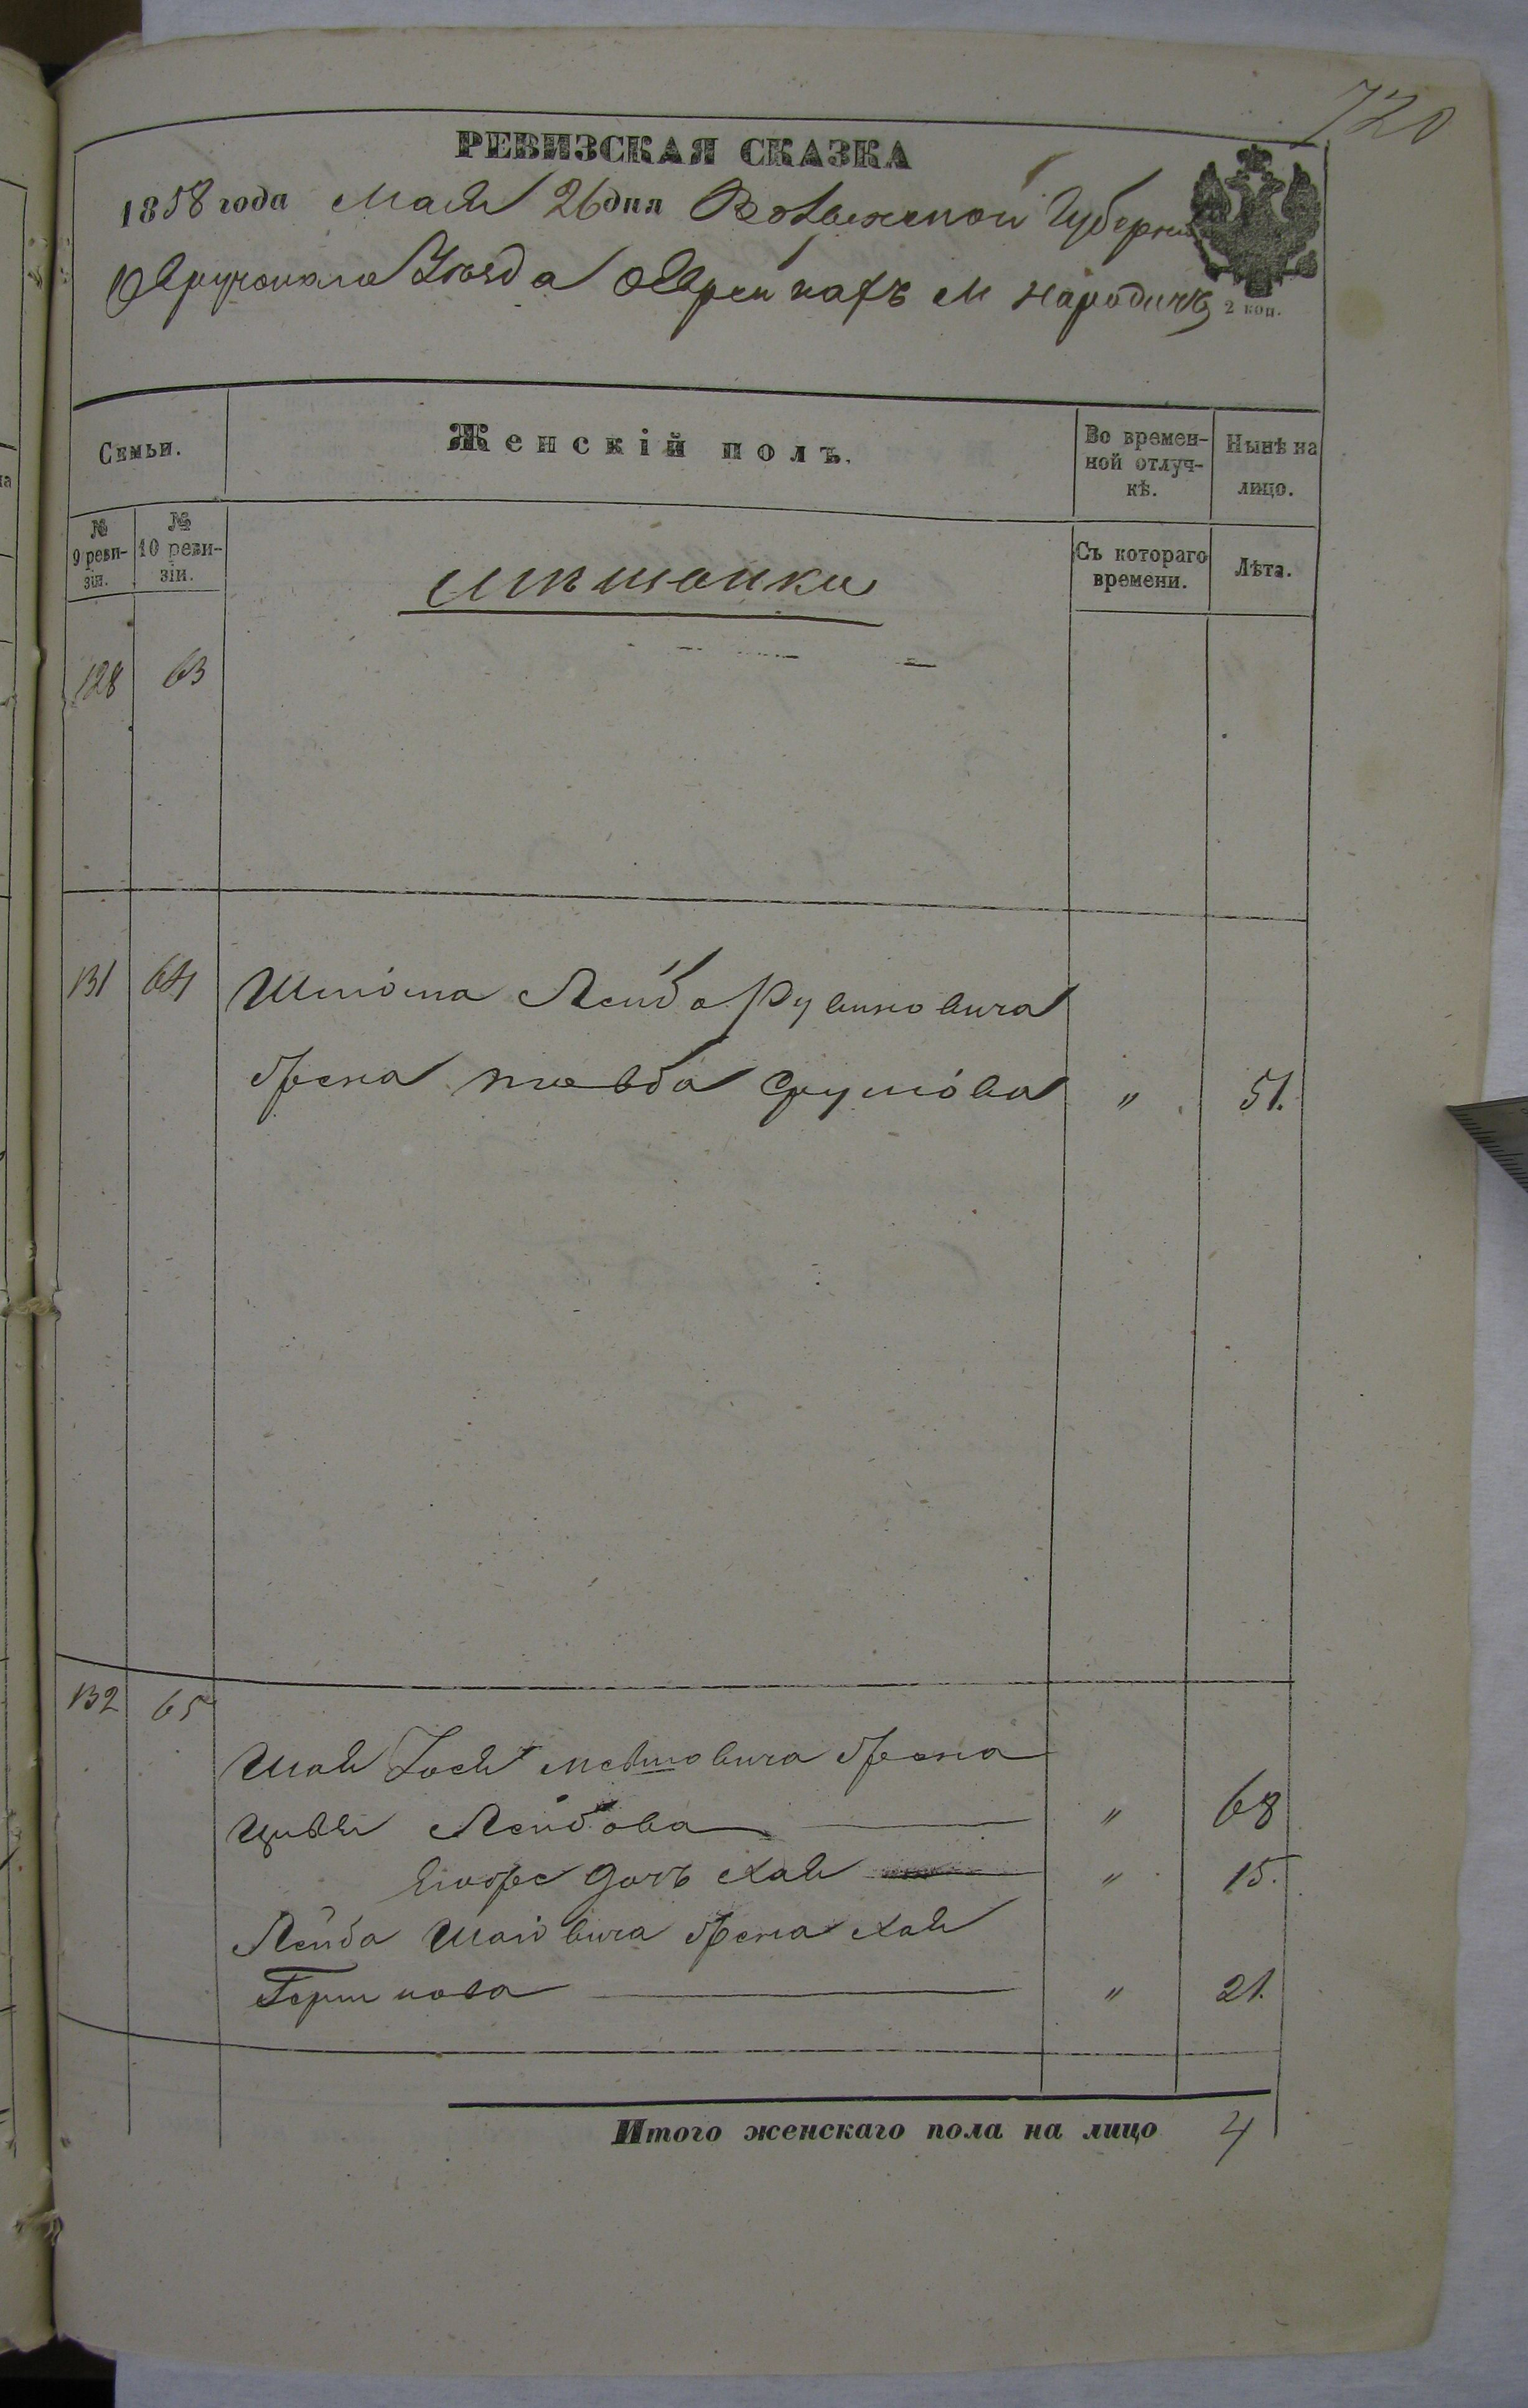 720
РЕВИЗСКАЯ СКАЗКА
1858 года Мая 26 дня Волынской Губерніи
Овручскаго Уѣзда о Евреикахъ м Народичъ
2 коп.
Семьи.
Женскій полъ.
Во времен-
ной отлуч-
кѣ.
Нынѣ на
лицо.
№
9 реви-
зіи.
№
10 реви-
зіи.
Съ котораго
времени.
Лѣта.
мѣщанки
128 63
131 64 Шліома Лейба Рувиновича
жена Товба Срулiова " 51.
132 65
Шая Іося Мовшовича жена
Цивья Лейбова " 68
дочь Хая " 15.
Лейба Шаіовича жена Хая
Гершкова " 21.
Итого женскаго пола на лицо 4